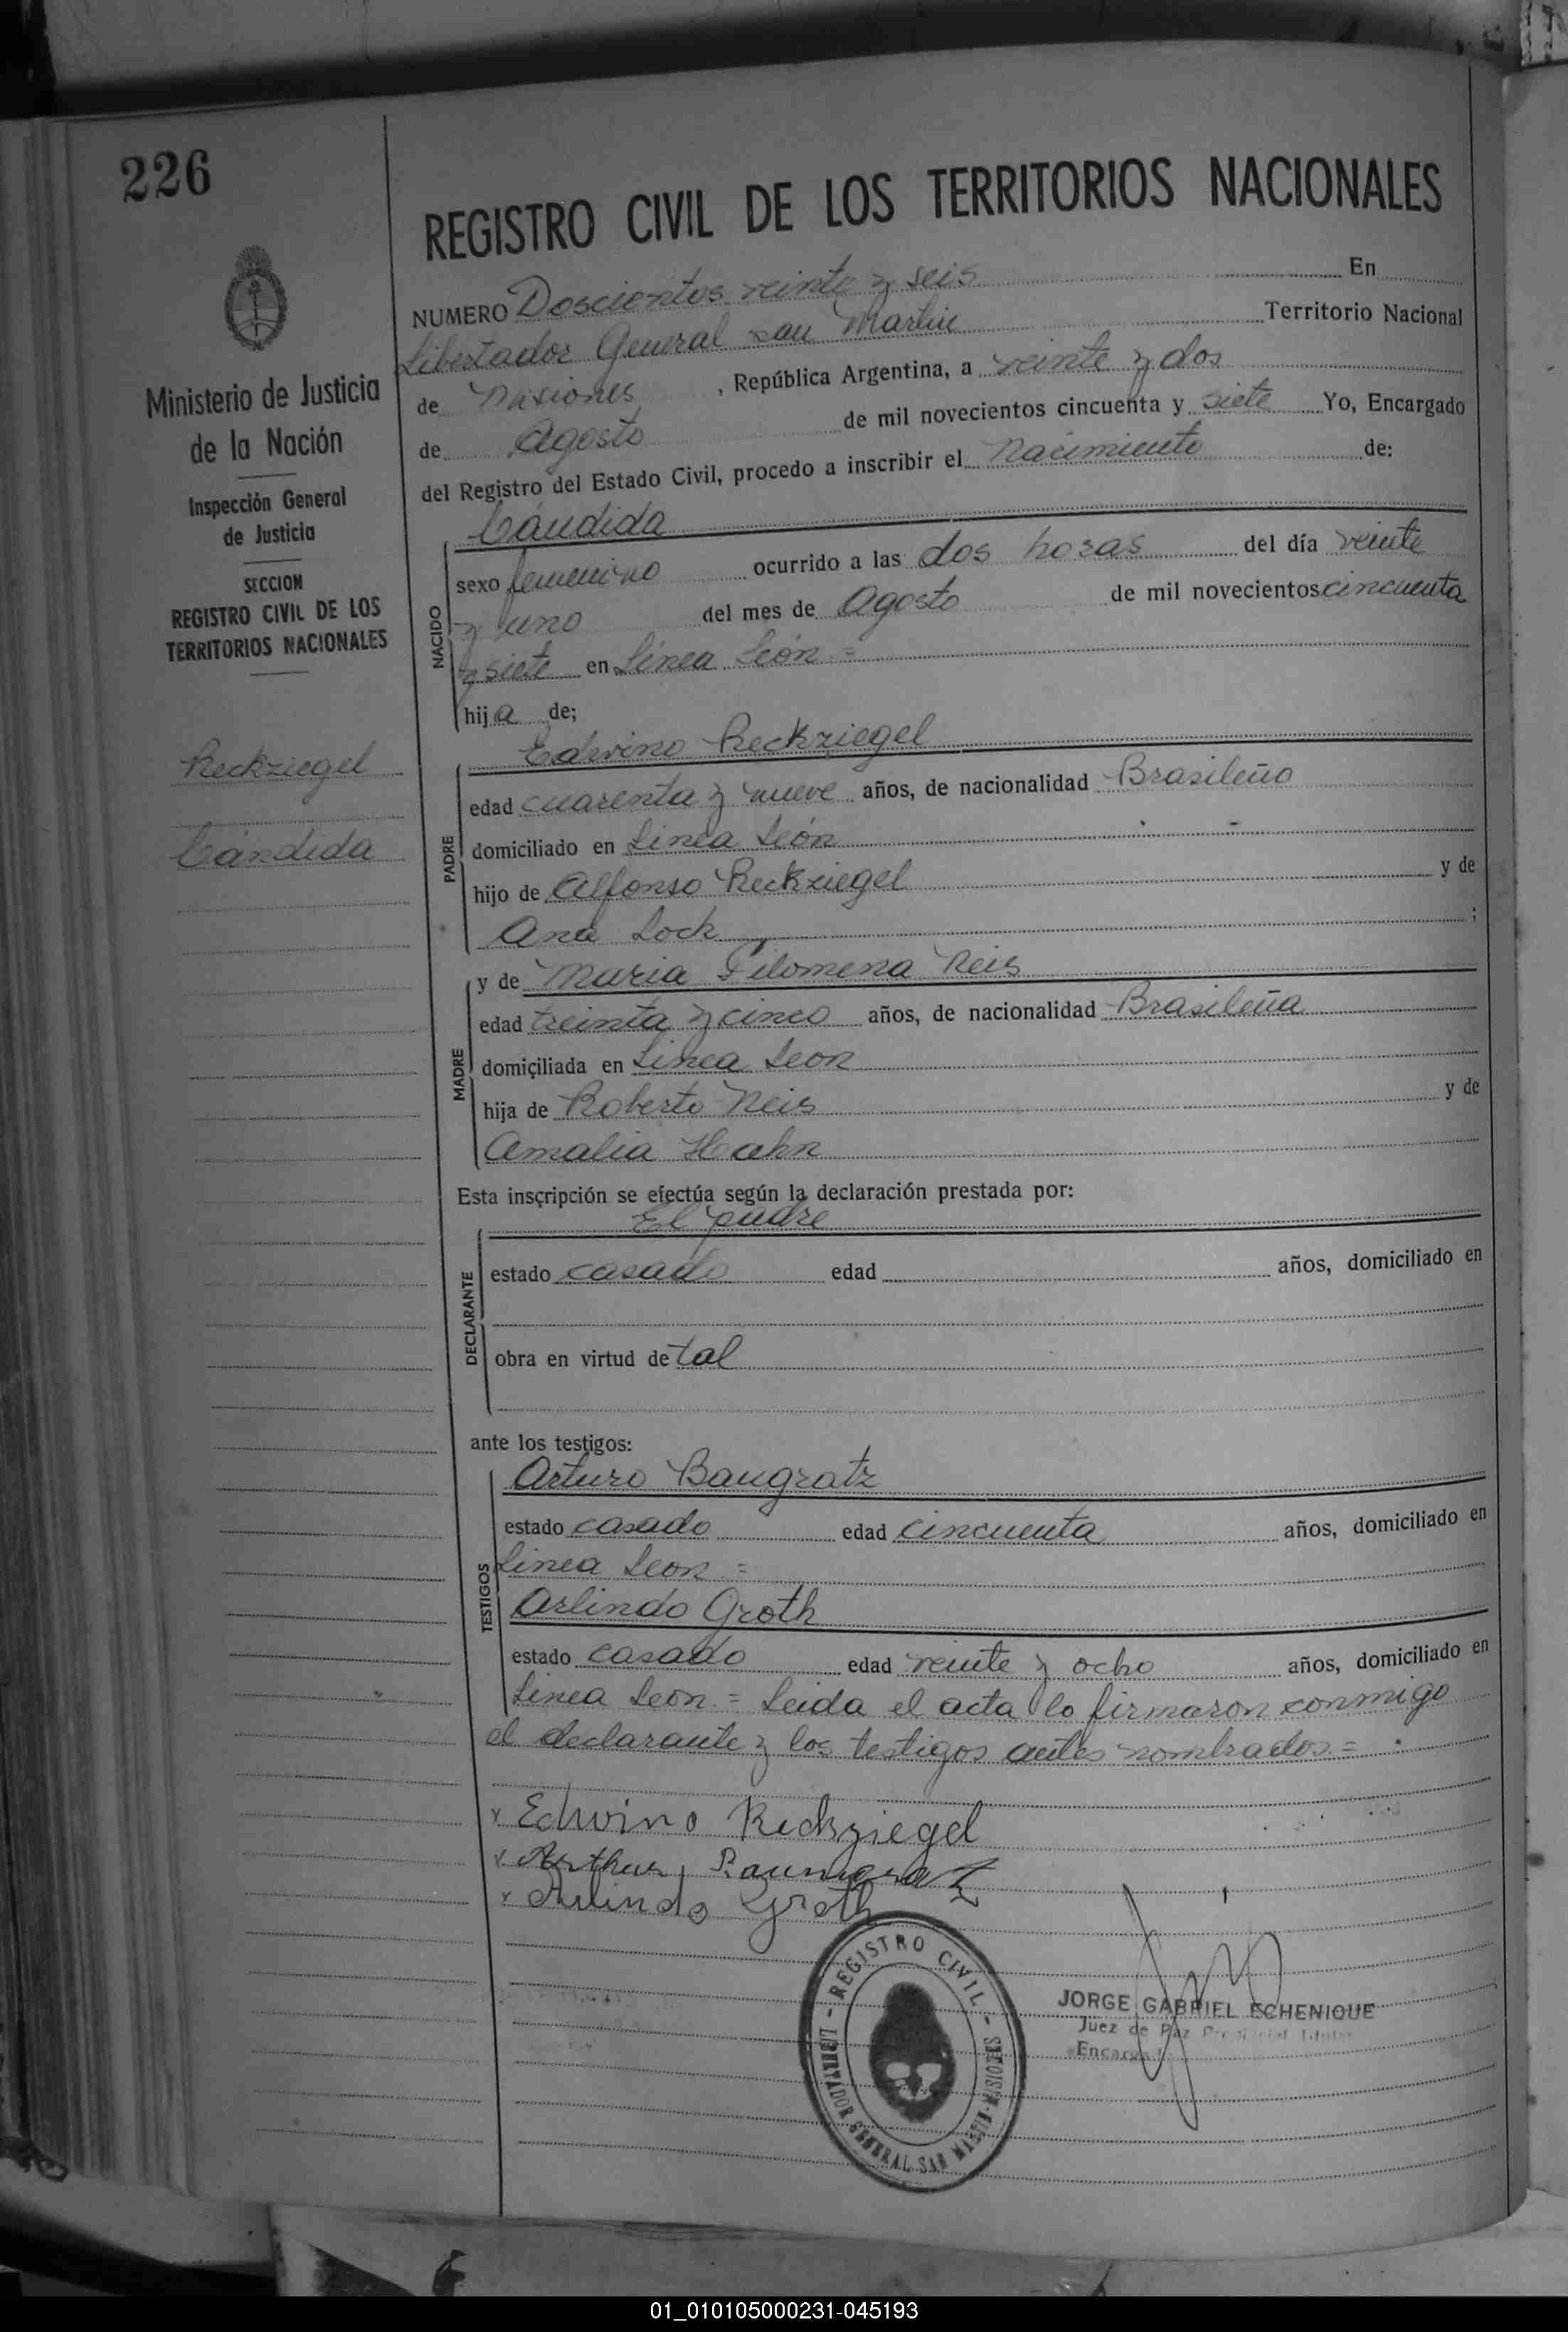 226
REGISTRO CIVIL DE LOS TERRITORIOS NACIONALES
Ministerio de Justicia
de la Nación
Inspección General
de Justicia
SECCION
REGISTRO CIVIL DE LOS
TERRITORIOS NACIONALES
Reckziegel
Cándida
NUMERO Doscientos veinte y seis En
Libertador General san Martin Territorio Nacional
de Misiones, República Argentina, a veinte y dos
de Agosto de mil novecientos cincuenta y siete Yo, Encargado
del Registro del Estado Civil, procedo a inscribir el Nacimiento de:
NACIDO
Cándida
sexo femenino ocurrido a las dos horas del día veinte
y uno del mes de Agosto de mil novecientos cincuenta
y siete en Linea León =
hija de;
PADRE
Edvino Reckziegel
edad cuarenta y nueve años, de nacionalidad Brasileño
domiciliado en Linea León
hijo de Alfonso Reckziegel y de
Ana Lock ;
MADRE
y de Maria Filomena Neis
edad treinta y cinco años, de nacionalidad Brasileña
domiciliada en Linea Leon
hija de Roberto Neis y de
Amalia Hahn
Esta inscripción se efectúa según la declaración prestada por:
DECLARANTE
El padre
estado casado edad años, domiciliado en
obra en virtud de tal
ante los testigos:
TESTIGOS
Arturo Baugratz
estado casado edad cincuenta años, domiciliado en
Linea Leon =
Arlindo Groth
estado casado edad veinte y ocho años, domiciliado en
Linea Leon = Leida el acta lo firmaron conmigo
el declarante y los testigos antes nombrados =
x Edwino Reckziegel
x Arthur Raumgratz
x Arlindo Groth
- REGISTRO CIVIL -
LIBERTADOR GENERAL SAN MARTIN-MISIONES
JORGE GABRIEL ECHENIQUE
Juez de Paz
01_010105000231-045193